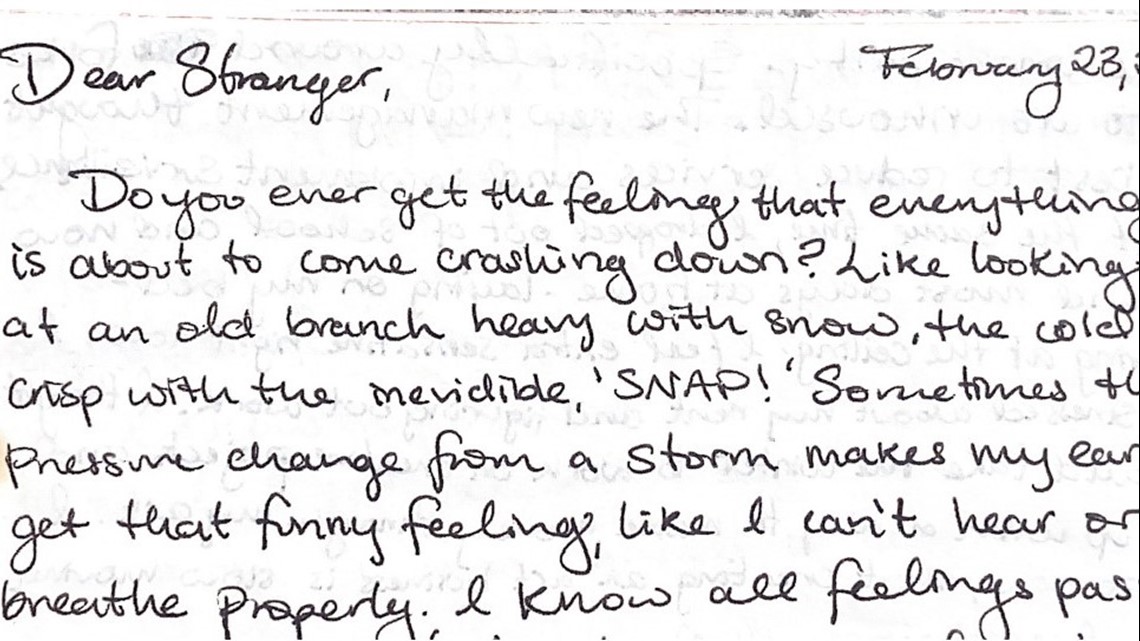 Dear Stranger, February 23,
Do you ever get the feeling, that everything
is about to come crashing down? Like looking
at an old branch heavy with snow, the cold
crisp with the inevidible, 'SNAP!' Sometimes th
pressure change from a storm makes my ear
get that funny feeling, like I can't hear or
breathe properly. I know all feelings pas